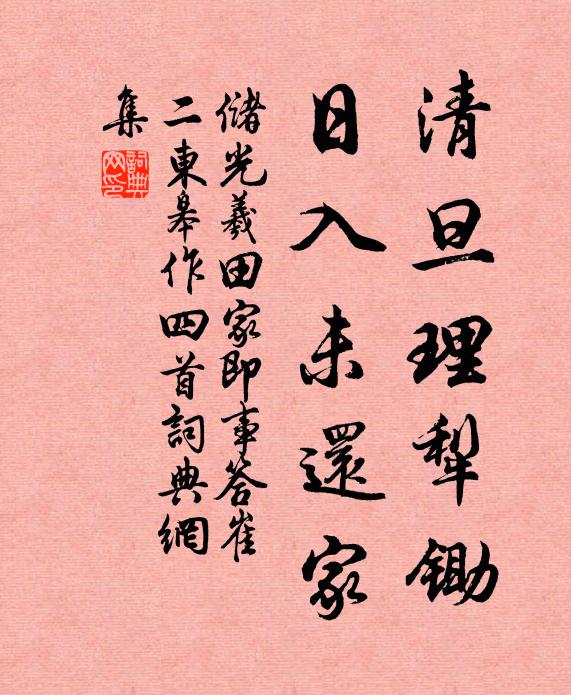 清旦理犁鋤
日入未還家
儲光羲田家即事答崔
二東皋作四首詞典網
集
詞典網印